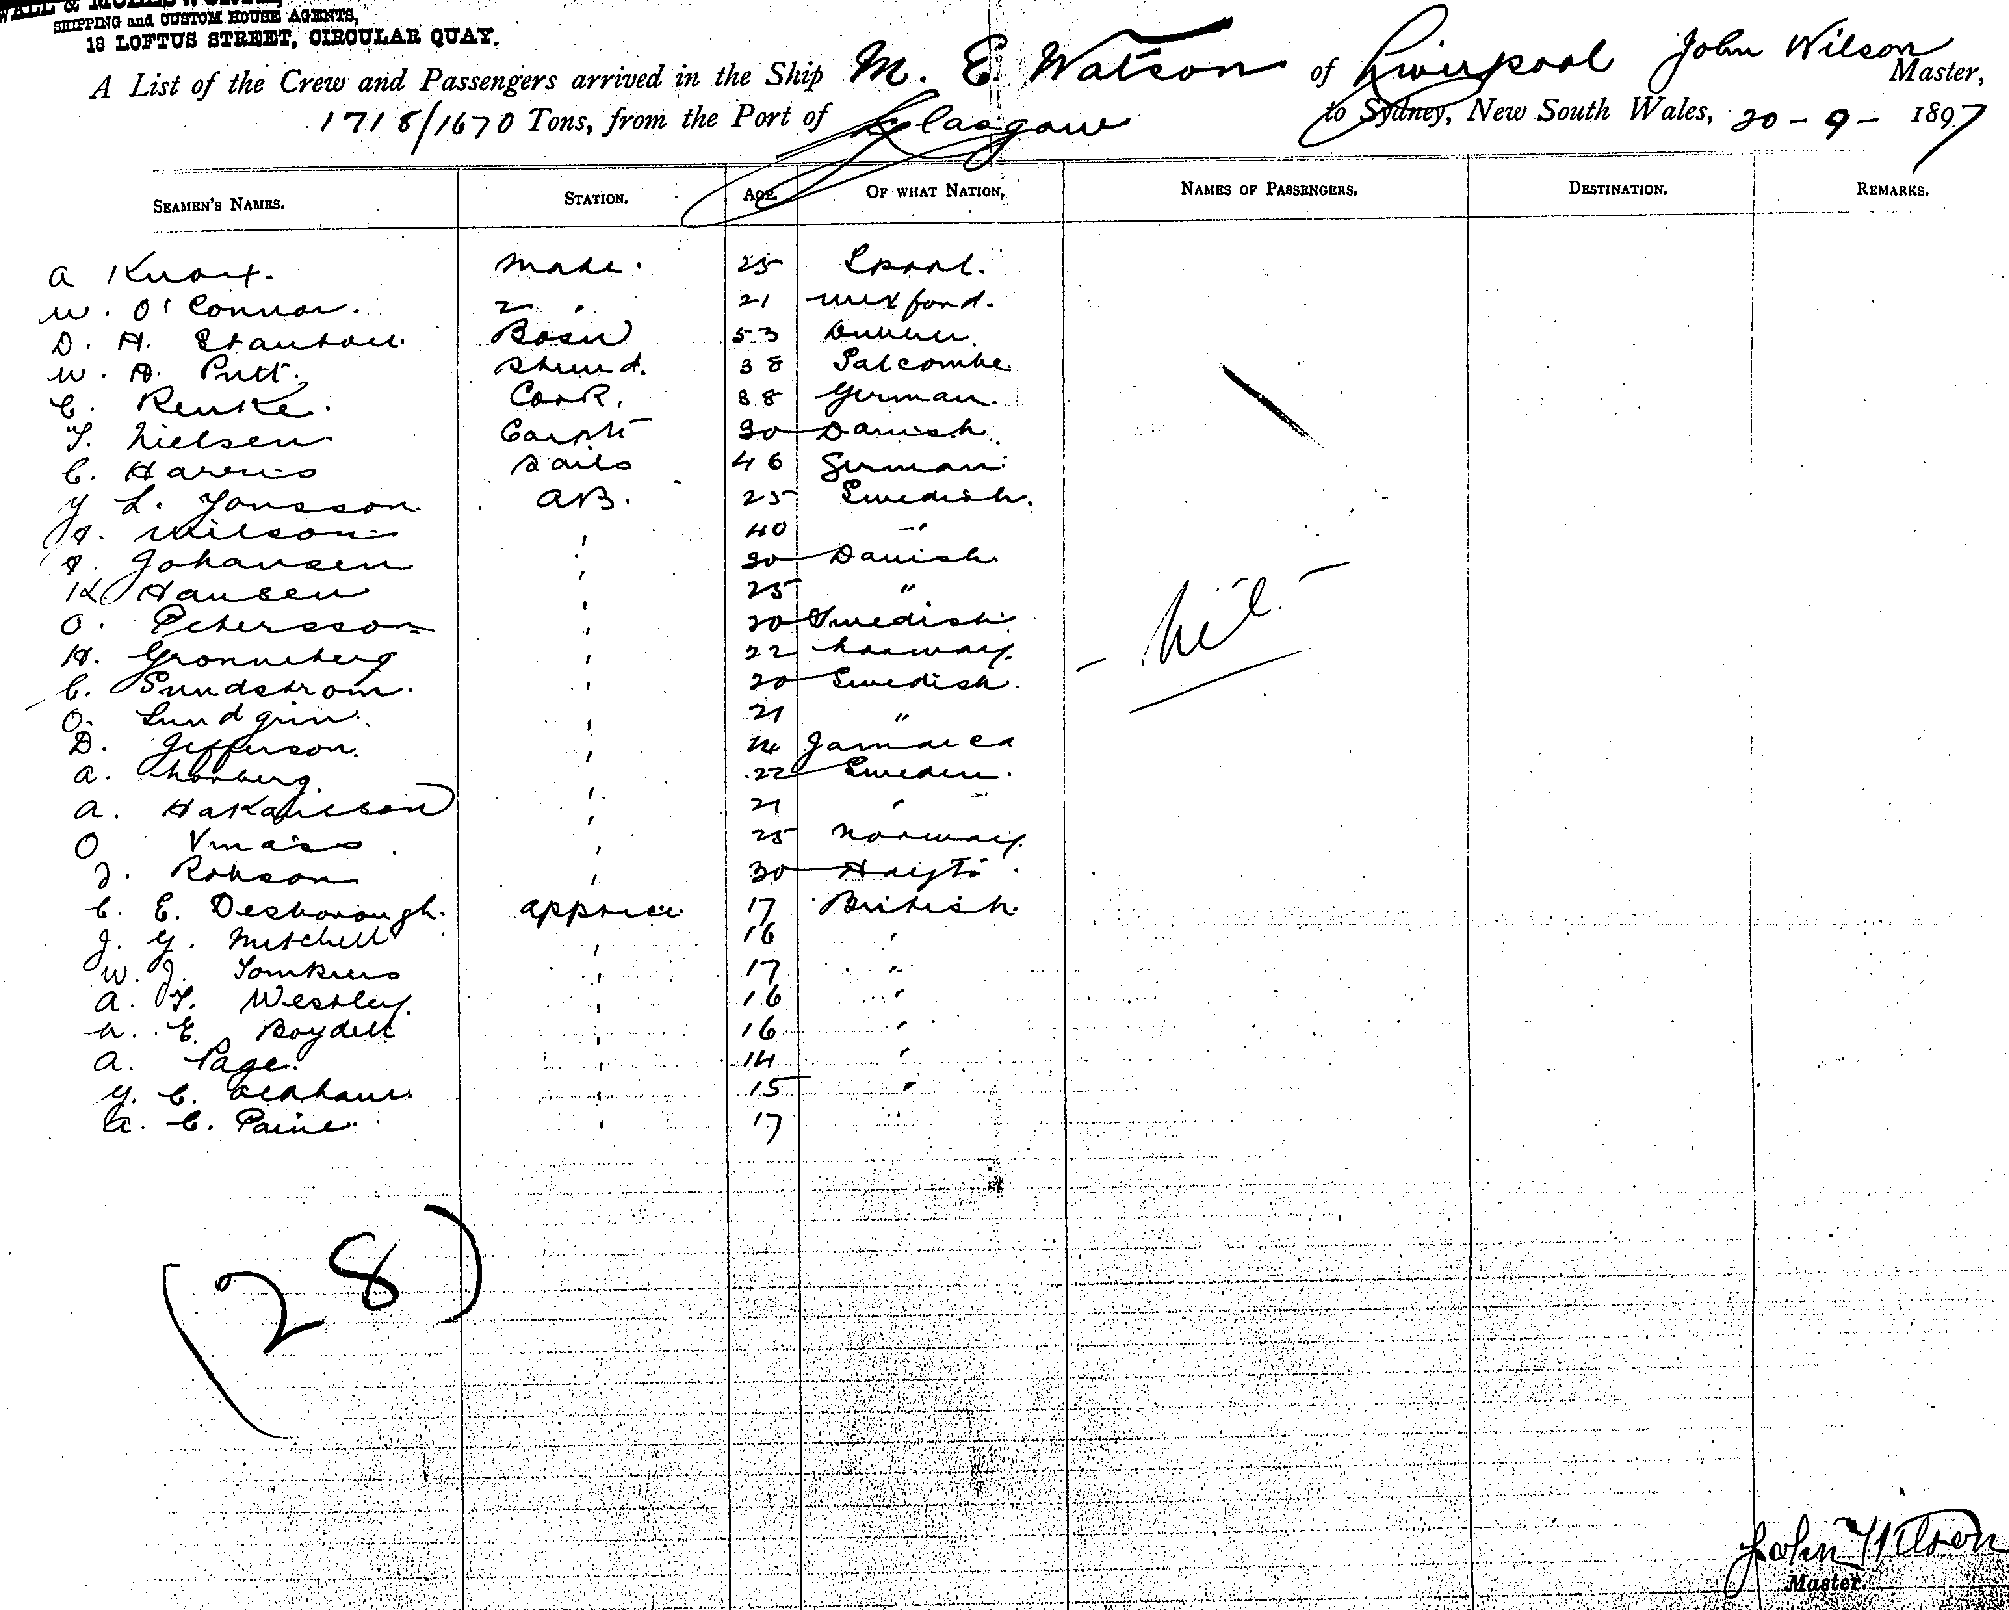 SHIPPING and CUSTOM HOUSE AGENTS,
18 LOFTUS STREET, CIRCULAR QUAY.
A List of the Crew and Passengers arrived in the Ship M. E. Watson of Liverpool John Wilson Master,
1718/1670 Tons, from the Port of Glasgow to Sydney, New South Wales, 20-9-1897
SEAMEN'S NAMES. STATION. AGE. OF WHAT NATION. NAMES OF PASSENGERS. DESTINATION. REMARKS.
A Knox. Mate. 25 Lpool.
W. O'Connor. 2 " 21 Wexford.
D. H. Stantall Bosn 53
W. H. Putt. Stewd. 38 Salcombe
C. Renke. Cook. 38 German.
T. Nielsen Carptr 30 Danish
C. Harris Sails 46 German
L. Jonsson AB. 25 Swedish.
Wilson " 40 "
Johansen " 30 Danish
K Hansen " 25 "
O. Petersson " 20 Swedish
H. Gronneberg " 22 Norway.
C. Sundstrom. " 20 Swedish.
O. Lundgrin. " 21 "
D. Jefferson. " Jamaica
A. Norberg. " 22 Sweden.
A. Hakansson " 21 "
O " 25 Norway.
J. Robson " 30 Hayti.
C. E. Desborough. Apptice 17 British
J. G. Mitchell " 16 "
W. J. Tomkins " 17 "
A. T. Westley. " 16 "
E. Boydell " 16 "
A. Page. " 14 "
C. Oldham. " 15 "
A. C. Paine. " 17
- Nil -
(28)
John Wilson
Master.